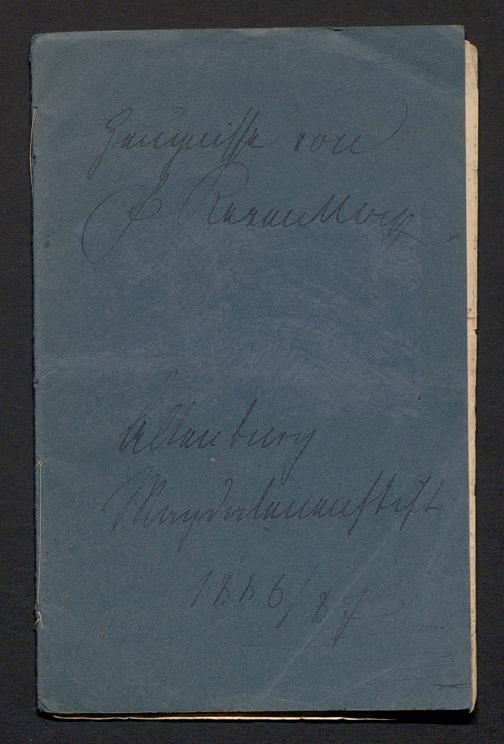 Zeugnisse von
Altenburg
Magdalenenstift
1886/87